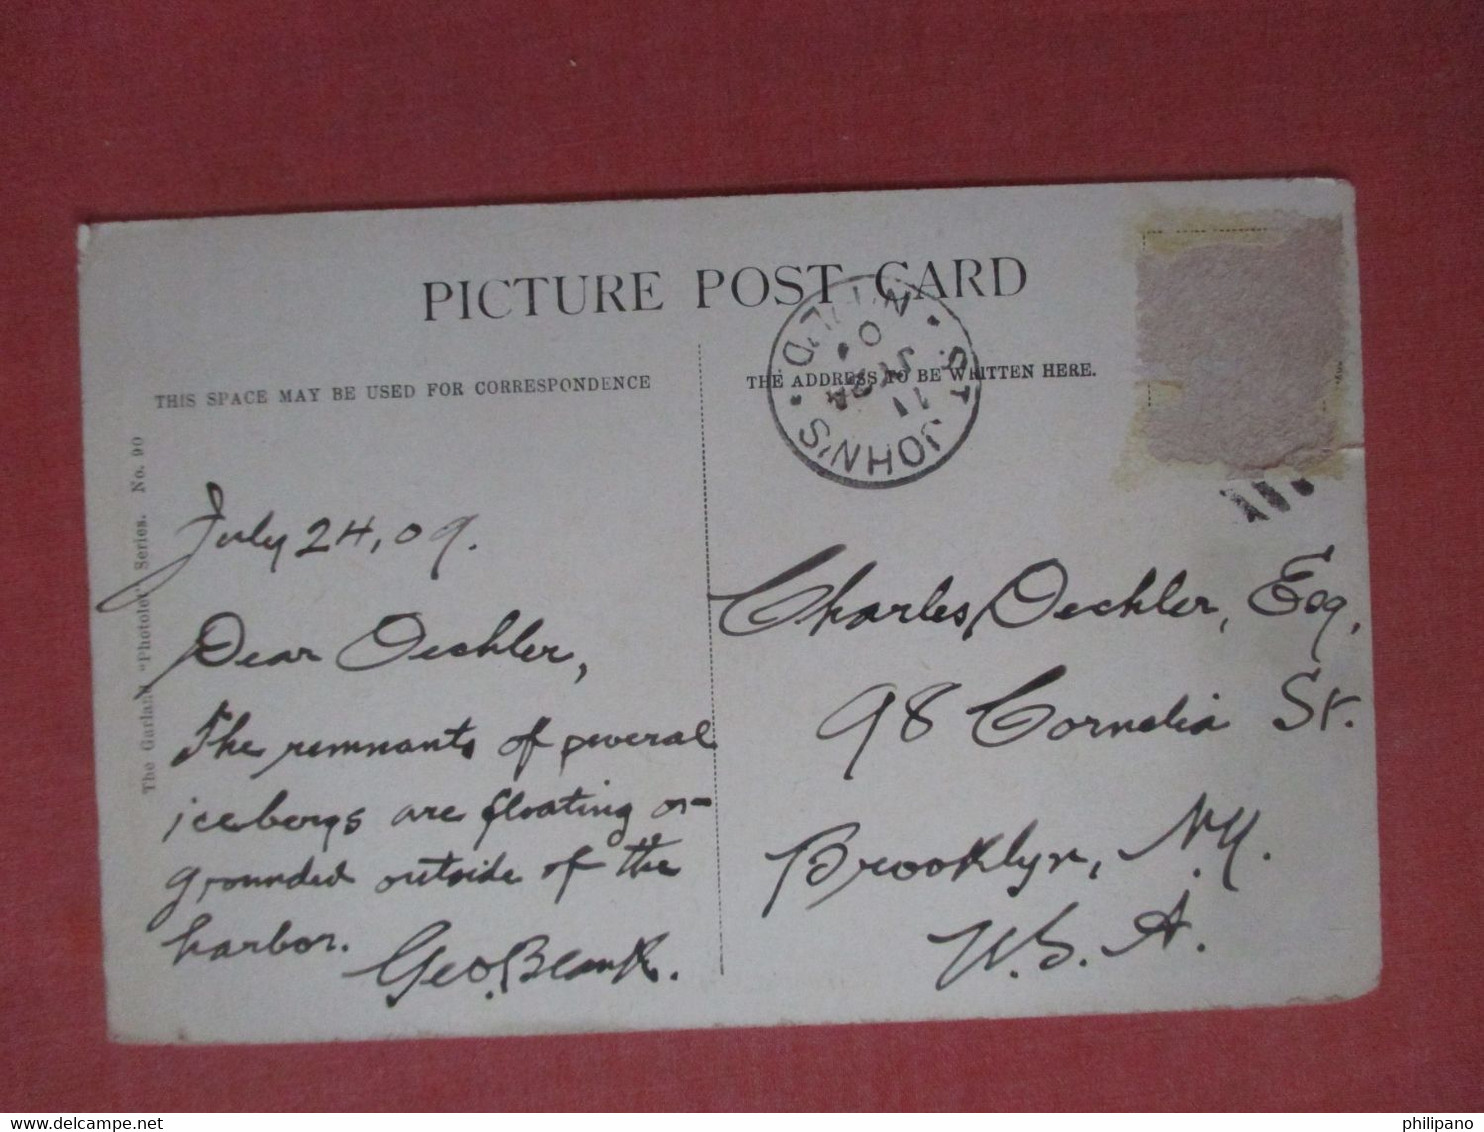 PICTURE POST CARD
THIS SPACE MAY BE USED FOR CORRESPONDENCE
THE ADDRESS TO BE WRITTEN HERE.
ST. JOHN'S
N'FLD
11
The Garland "Photolet" Series. No. 90
July 24, 09.
Dear Oechler,
The remnants of several
icebergs are floating or
grounded outside of the
harbor.
Geo. Blank.
Charles Oechler, Esq,
98 Cornelia St.
Brooklyn, N.Y.
U.S.A.
philipano